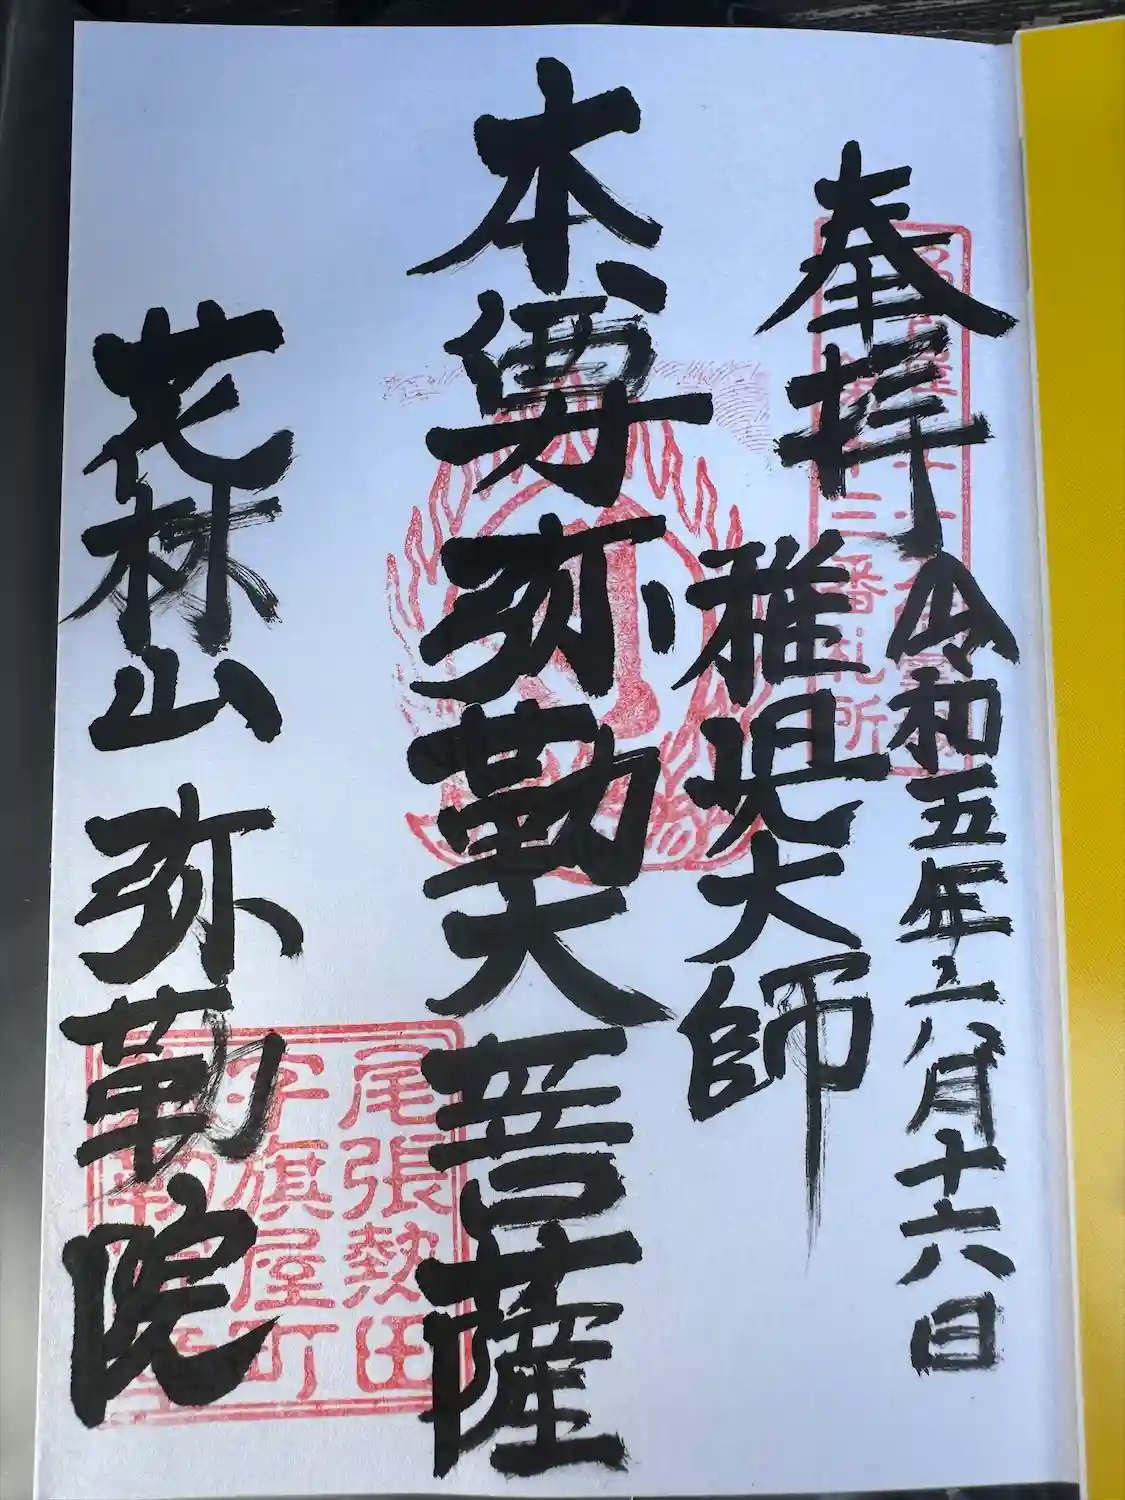 奉拝
令和五年二月十六日
稚児大師
本尊弥勒大菩薩
花林山
弥勒院
二番札所
尾張熱田
字旗屋町